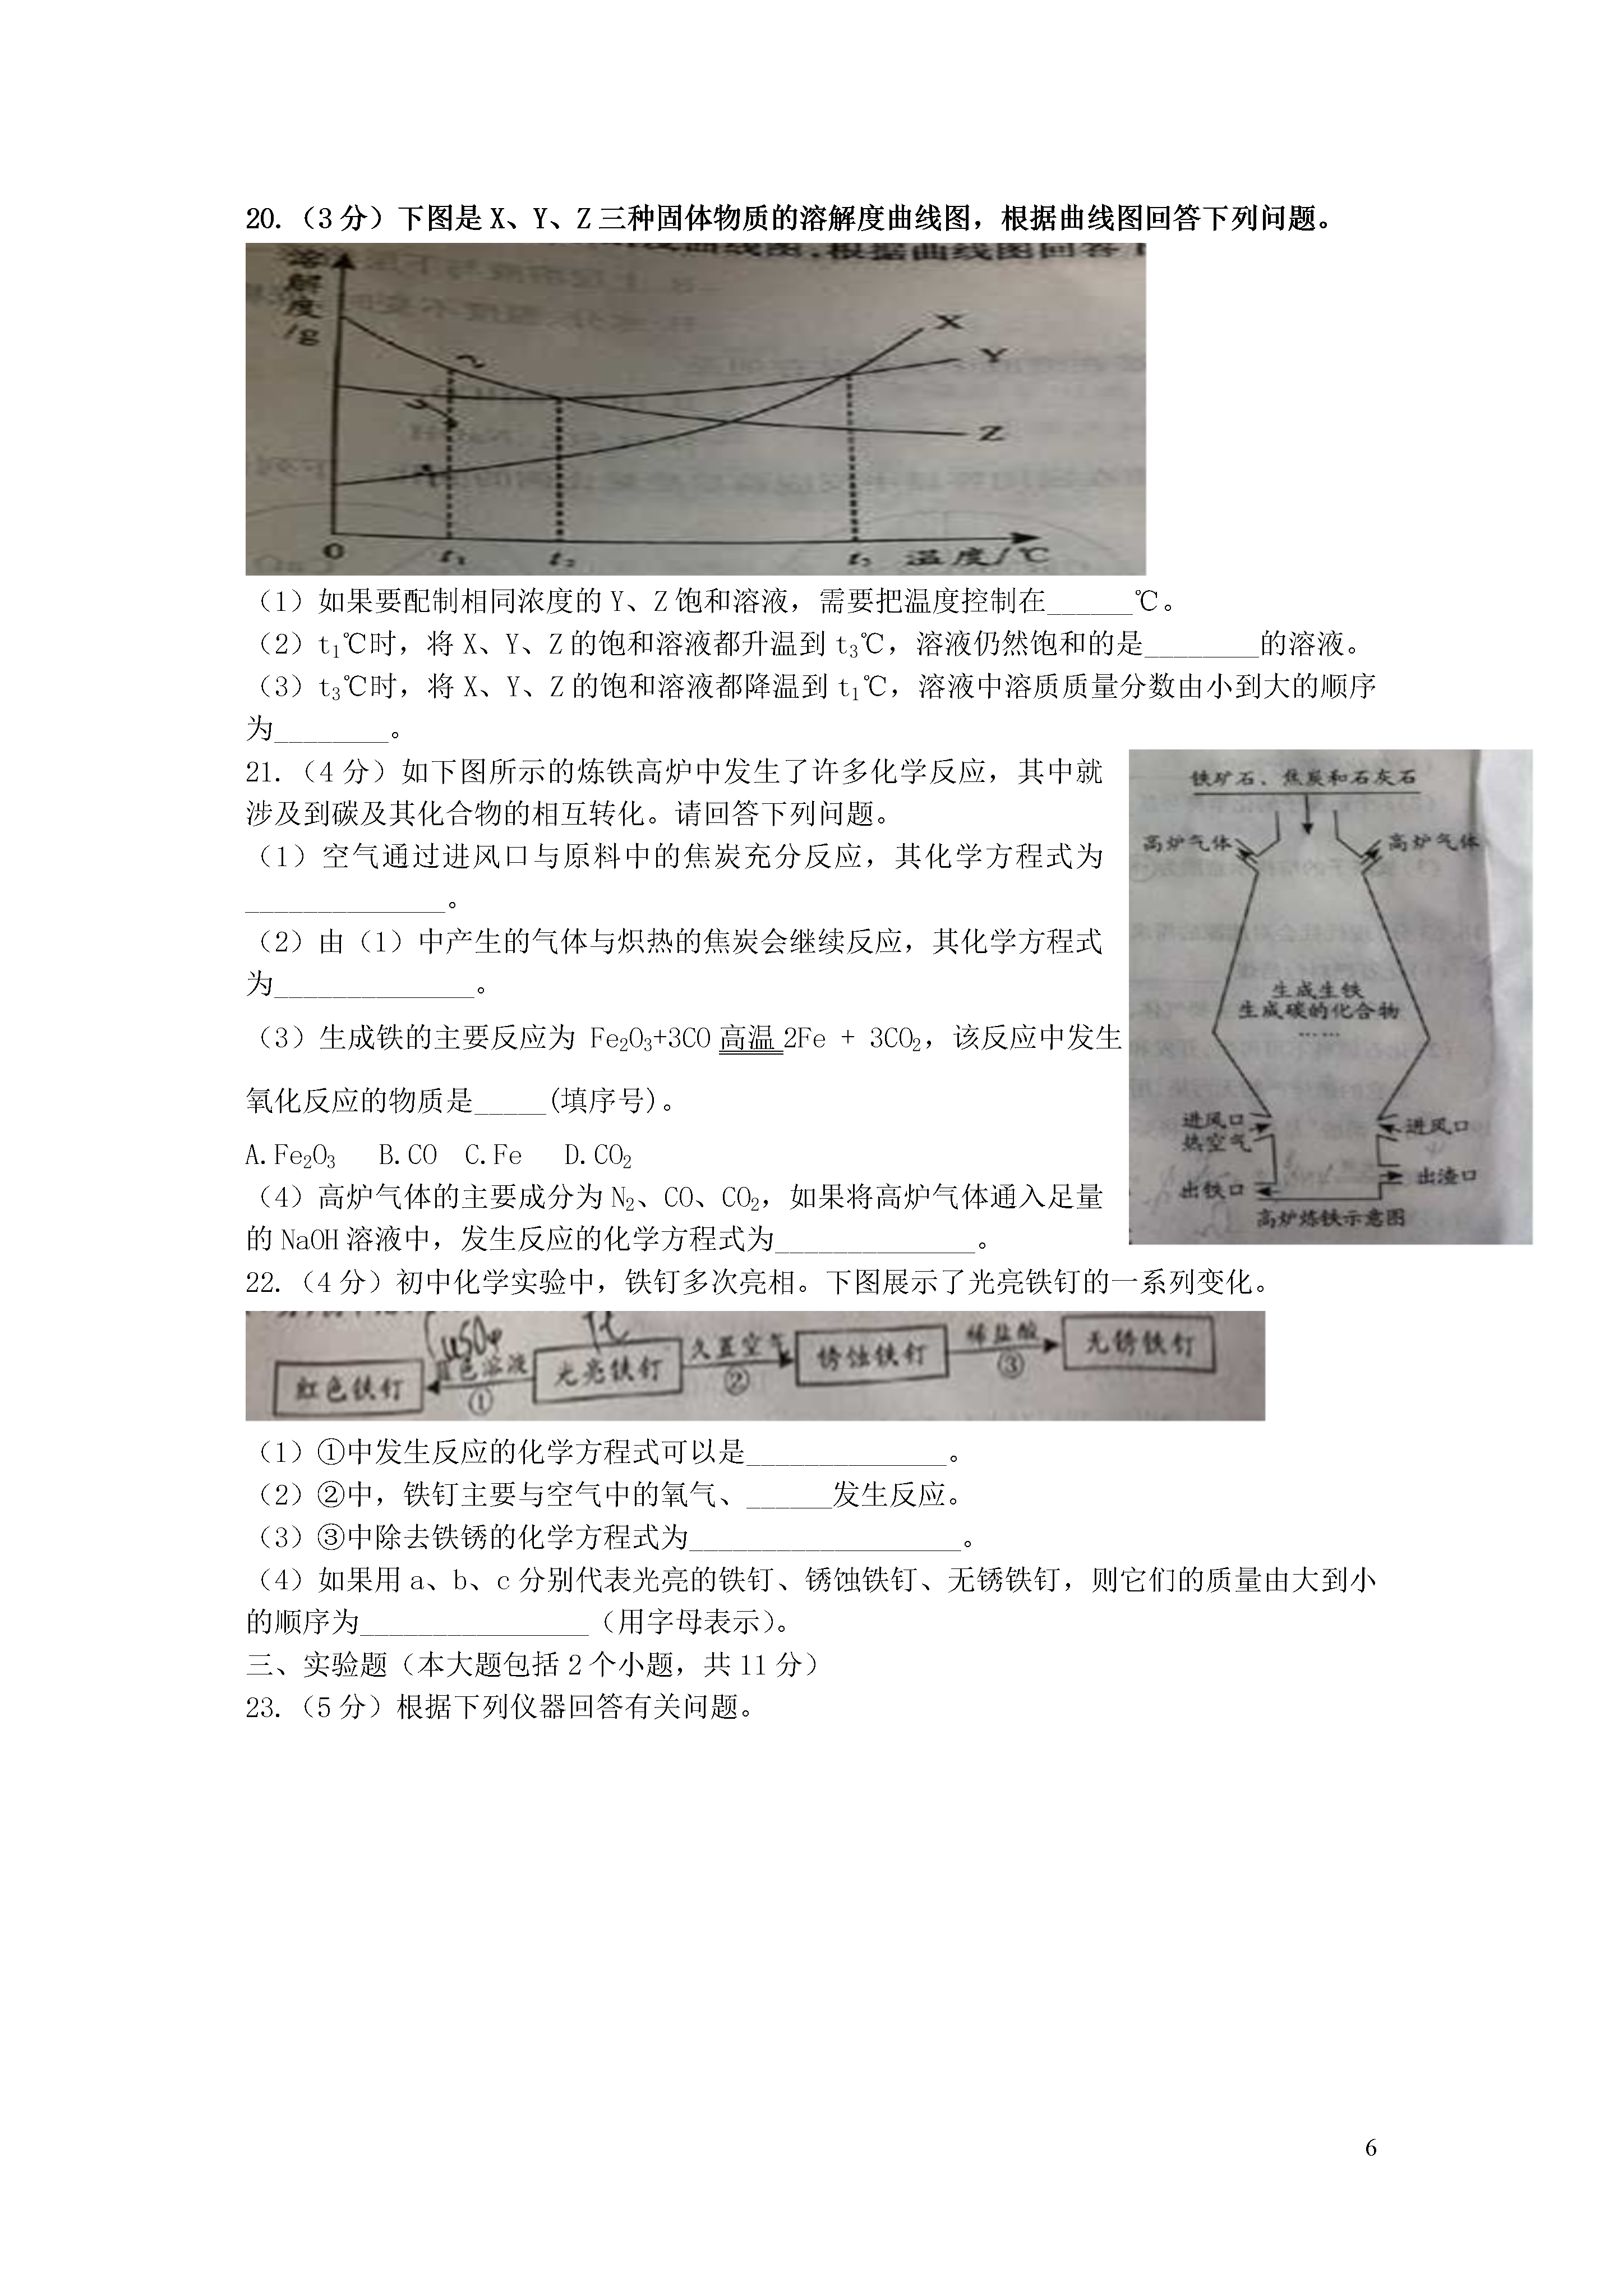 20.（3 分）下图是 X、Y、Z 三种固体物质的溶解度曲线图，根据曲线图回答下列问题。
溶解度/g
X
Y
Z
0
t₁
t₂
t₃
温度/℃
（1）如果要配制相同浓度的 Y、Z 饱和溶液，需要把温度控制在______℃。
（2）t₁℃时，将 X、Y、Z 的饱和溶液都升温到 t₃℃，溶液仍然饱和的是________的溶液。
（3）t₃℃时，将 X、Y、Z 的饱和溶液都降温到 t₁℃，溶液中溶质质量分数由小到大的顺序
为________。
21.（4 分）如下图所示的炼铁高炉中发生了许多化学反应，其中就
涉及到碳及其化合物的相互转化。请回答下列问题。
（1）空气通过进风口与原料中的焦炭充分反应，其化学方程式为
______________。
（2）由（1）中产生的气体与炽热的焦炭会继续反应，其化学方程式
为______________。
（3）生成铁的主要反应为 Fe₂O₃+3CO 高温 2Fe + 3CO₂，该反应中发生
氧化反应的物质是_____(填序号)。
A.Fe₂O₃ B.CO C.Fe D.CO₂
（4）高炉气体的主要成分为 N₂、CO、CO₂，如果将高炉气体通入足量
的 NaOH 溶液中，发生反应的化学方程式为______________。
铁矿石、焦炭和石灰石
高炉气体
高炉气体
生成生铁
生成碳的化合物
……
进风口
热空气
进风口
出铁口
出渣口
高炉炼铁示意图
22.（4 分）初中化学实验中，铁钉多次亮相。下图展示了光亮铁钉的一系列变化。
CuSO₄
红色铁钉
蓝色溶液
①
光亮铁钉
久置空气
②
锈蚀铁钉
稀盐酸
③
无锈铁钉
（1）①中发生反应的化学方程式可以是______________。
（2）②中，铁钉主要与空气中的氧气、______发生反应。
（3）③中除去铁锈的化学方程式为___________________。
（4）如果用 a、b、c 分别代表光亮的铁钉、锈蚀铁钉、无锈铁钉，则它们的质量由大到小
的顺序为________________（用字母表示）。
三、实验题（本大题包括 2 个小题，共 11 分）
23.（5 分）根据下列仪器回答有关问题。
6